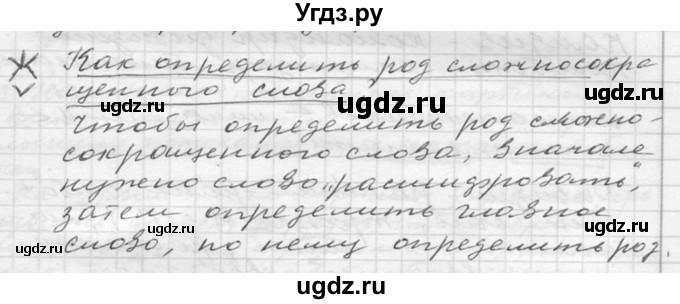 Угдз.ру
Как определить род сложносокра
щенного слова
Чтобы определить род сложно-
сокращенного слова, вначале
нужно слово „расшифровать",
затем определить главное
слово, по нему определить род.
ugdz.ru
ugdz.ru
ugdz.ru
ugdz.ru
ugdz.ru
ugdz.ru
ugdz.ru
ugdz.ru
ugdz.ru